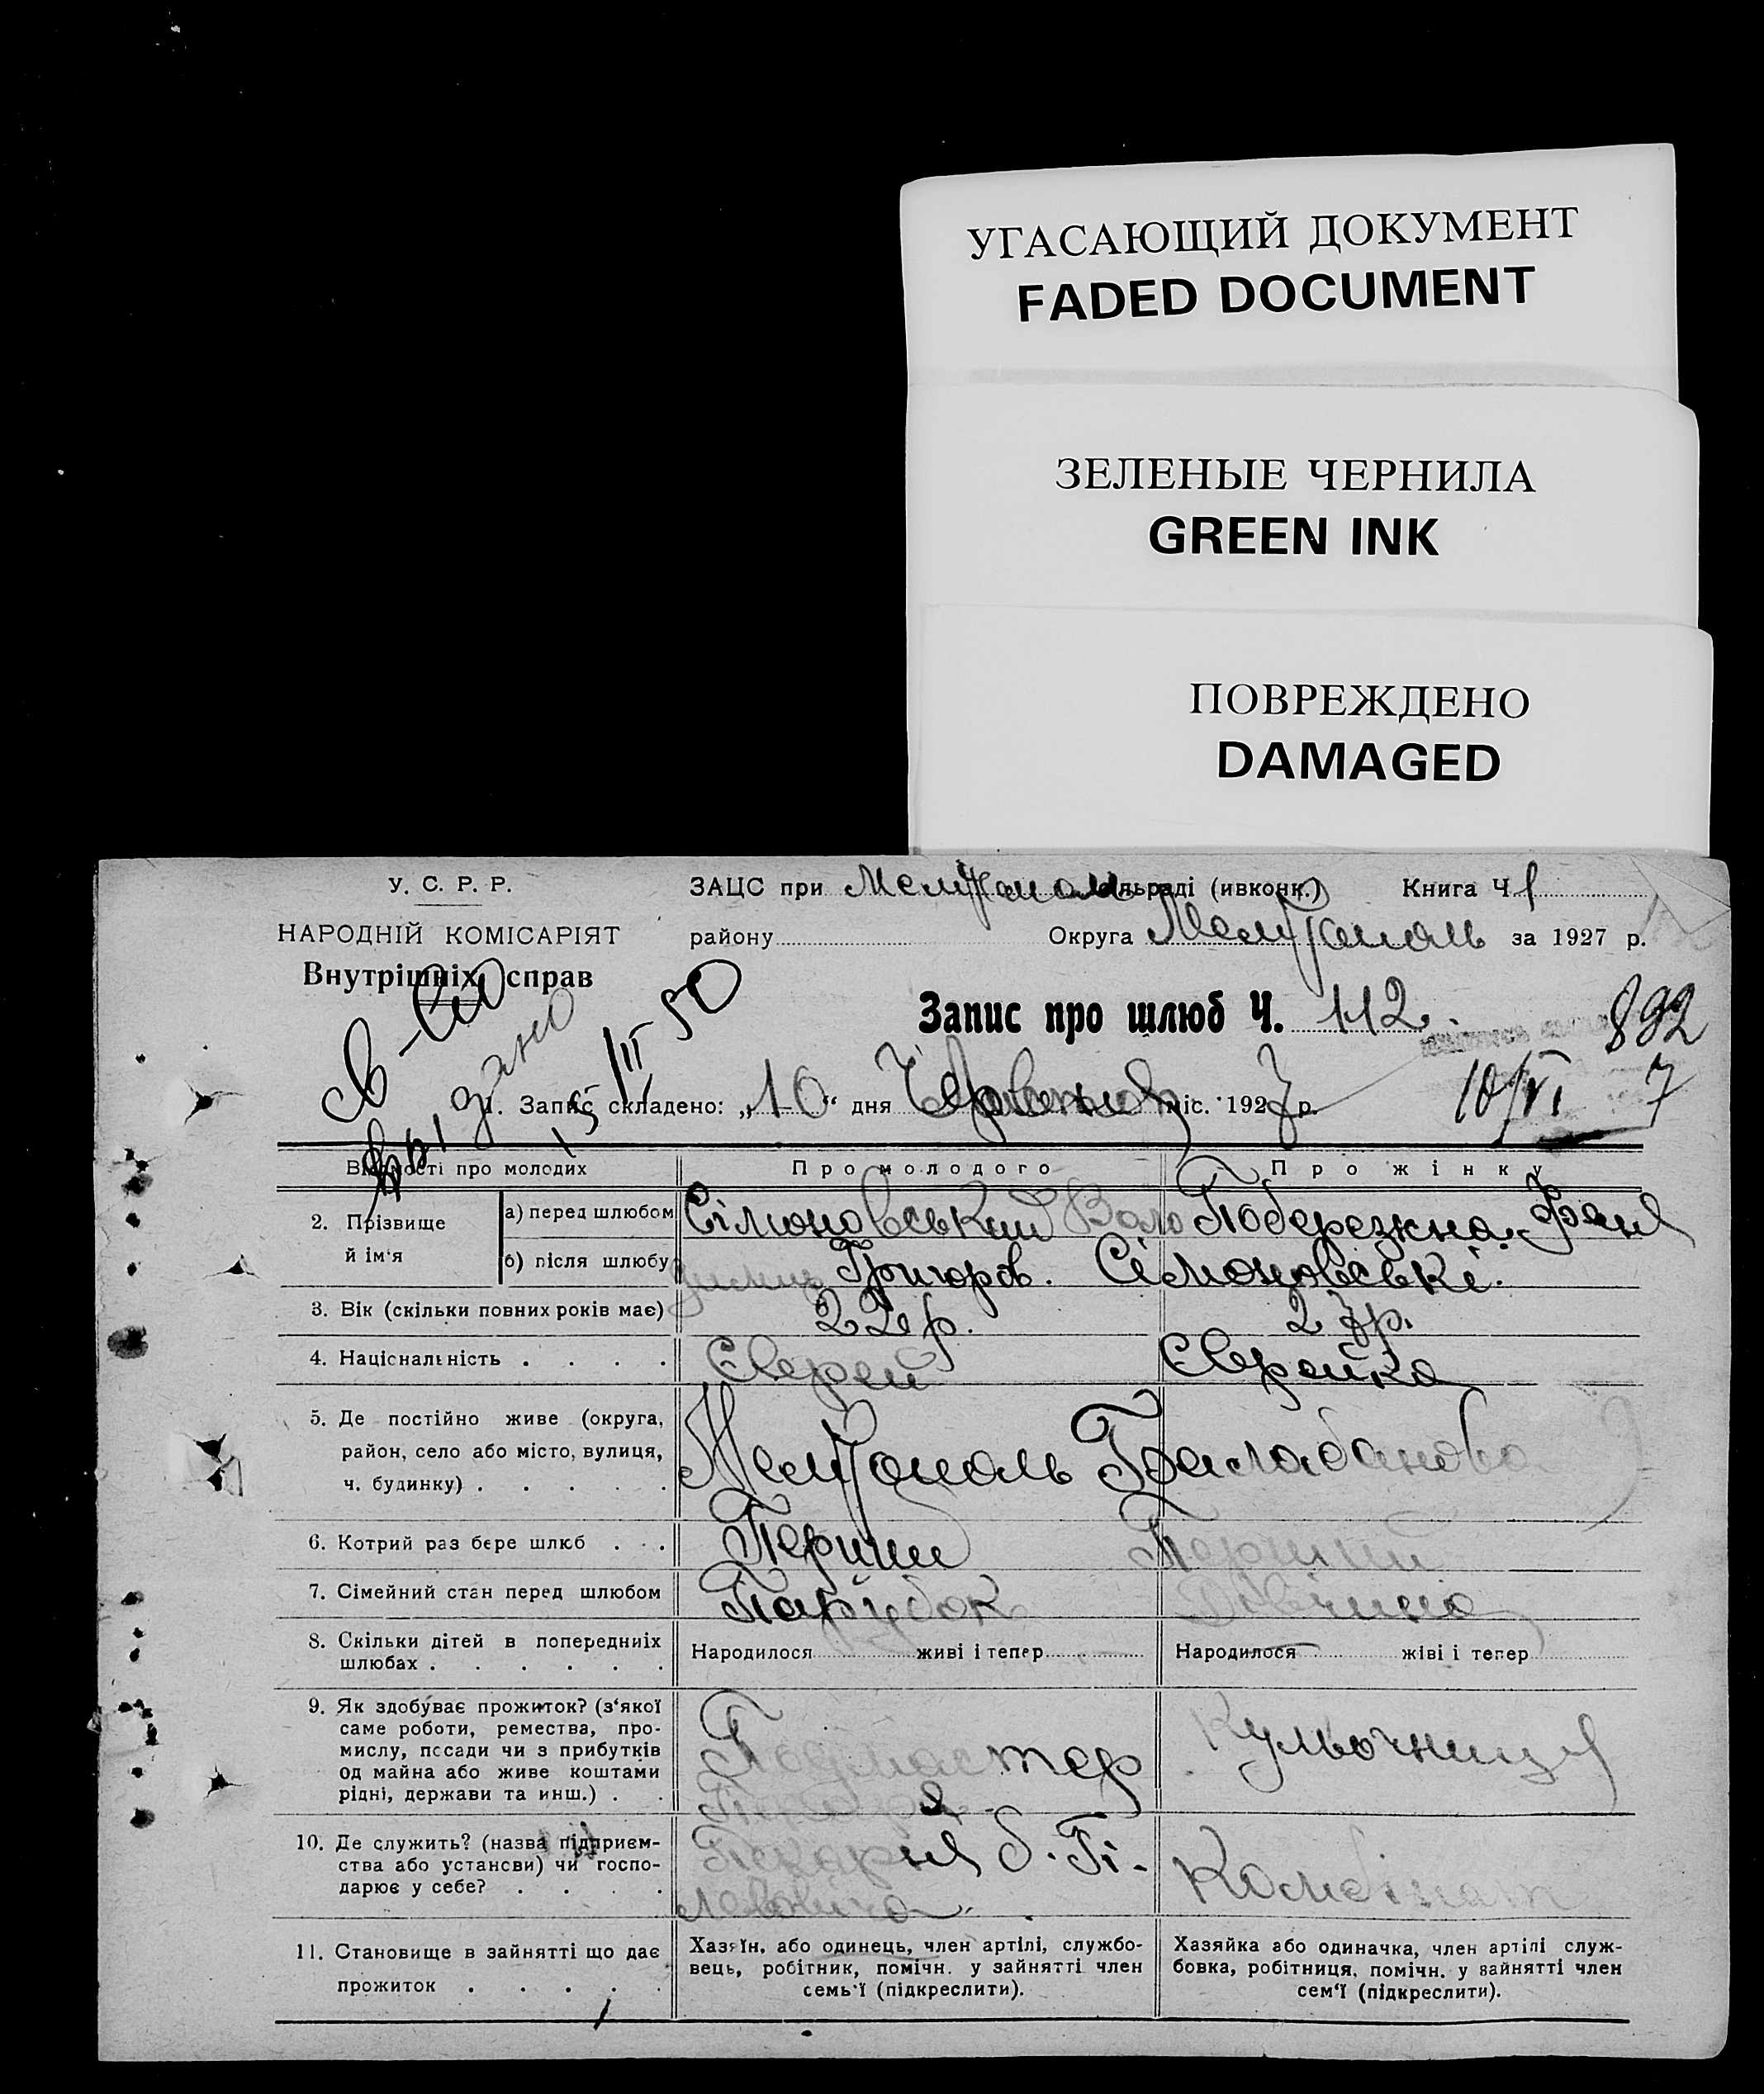 УГАСАЮЩИЙ ДОКУМЕНТ
FADED DOCUMENT
ЗЕЛЕНЫЕ ЧЕРНИЛА
GREEN INK
ПОВРЕЖДЕНО
DAMAGED
У. С. Р. Р.
НАРОДНІЙ КОМІСАРІЯТ
Внутрішніх справ
ЗАЦС при сільраді (ивконк.) Книга Ч 1
району Округа Мелітополь за 1927 р.
Запис про шлюб Ч. 112.
892
св-во
15/III 50
10/VI 7
1. Запис складено: „10“ дня Червеня міс. 1927 р.
Відомості про молодих
Про молодого
Про жінку
2. Прізвище й ім'я
а) перед шлюбом
Сімоновський Воло
Побережна Фаня
б) після шлюбу
Григоров. Сімоновські.
3. Вік (скільки повних років має)
22 р.
27 р.
4. Національність . . . .
Єврей
Єврейка
5. Де постійно живе (округа,
район, село або місто, вулиця,
ч. будинку) . . . . .
Мелітополь
6. Котрий раз бере шлюб . . .
Перший
Перший
7. Сімейний стан перед шлюбом
Парубок
Дівчина
8. Скільки дітей в попередниіх
шлюбах . . . . . .
Народилося живі і тепер
Народилося жіві і тепер
9. Як здобуває прожиток? (з'якої
саме роботи, ремества, про-
мислу, посади чи з прибутків
од майна або живе коштами
рідні, держави та инш.) . .
Подмастер
Кульочниця
10. Де служить? (назва підприєм-
ства або установи) чи госпо-
дарює у себе? . . . .
Пекарня б. Гі-
левича
Комбінат
11. Становище в зайнятті що дає
прожиток . . . . .
Хазяїн, або одинець, член артілі, службо-
вець, робітник, помічн. у зайнятті член
семь'ї (підкреслити).
Хазяйка або одиначка, член артілі служ-
бовка, робітниця, помічн. у зайнятті член
сем'ї (підкреслити).